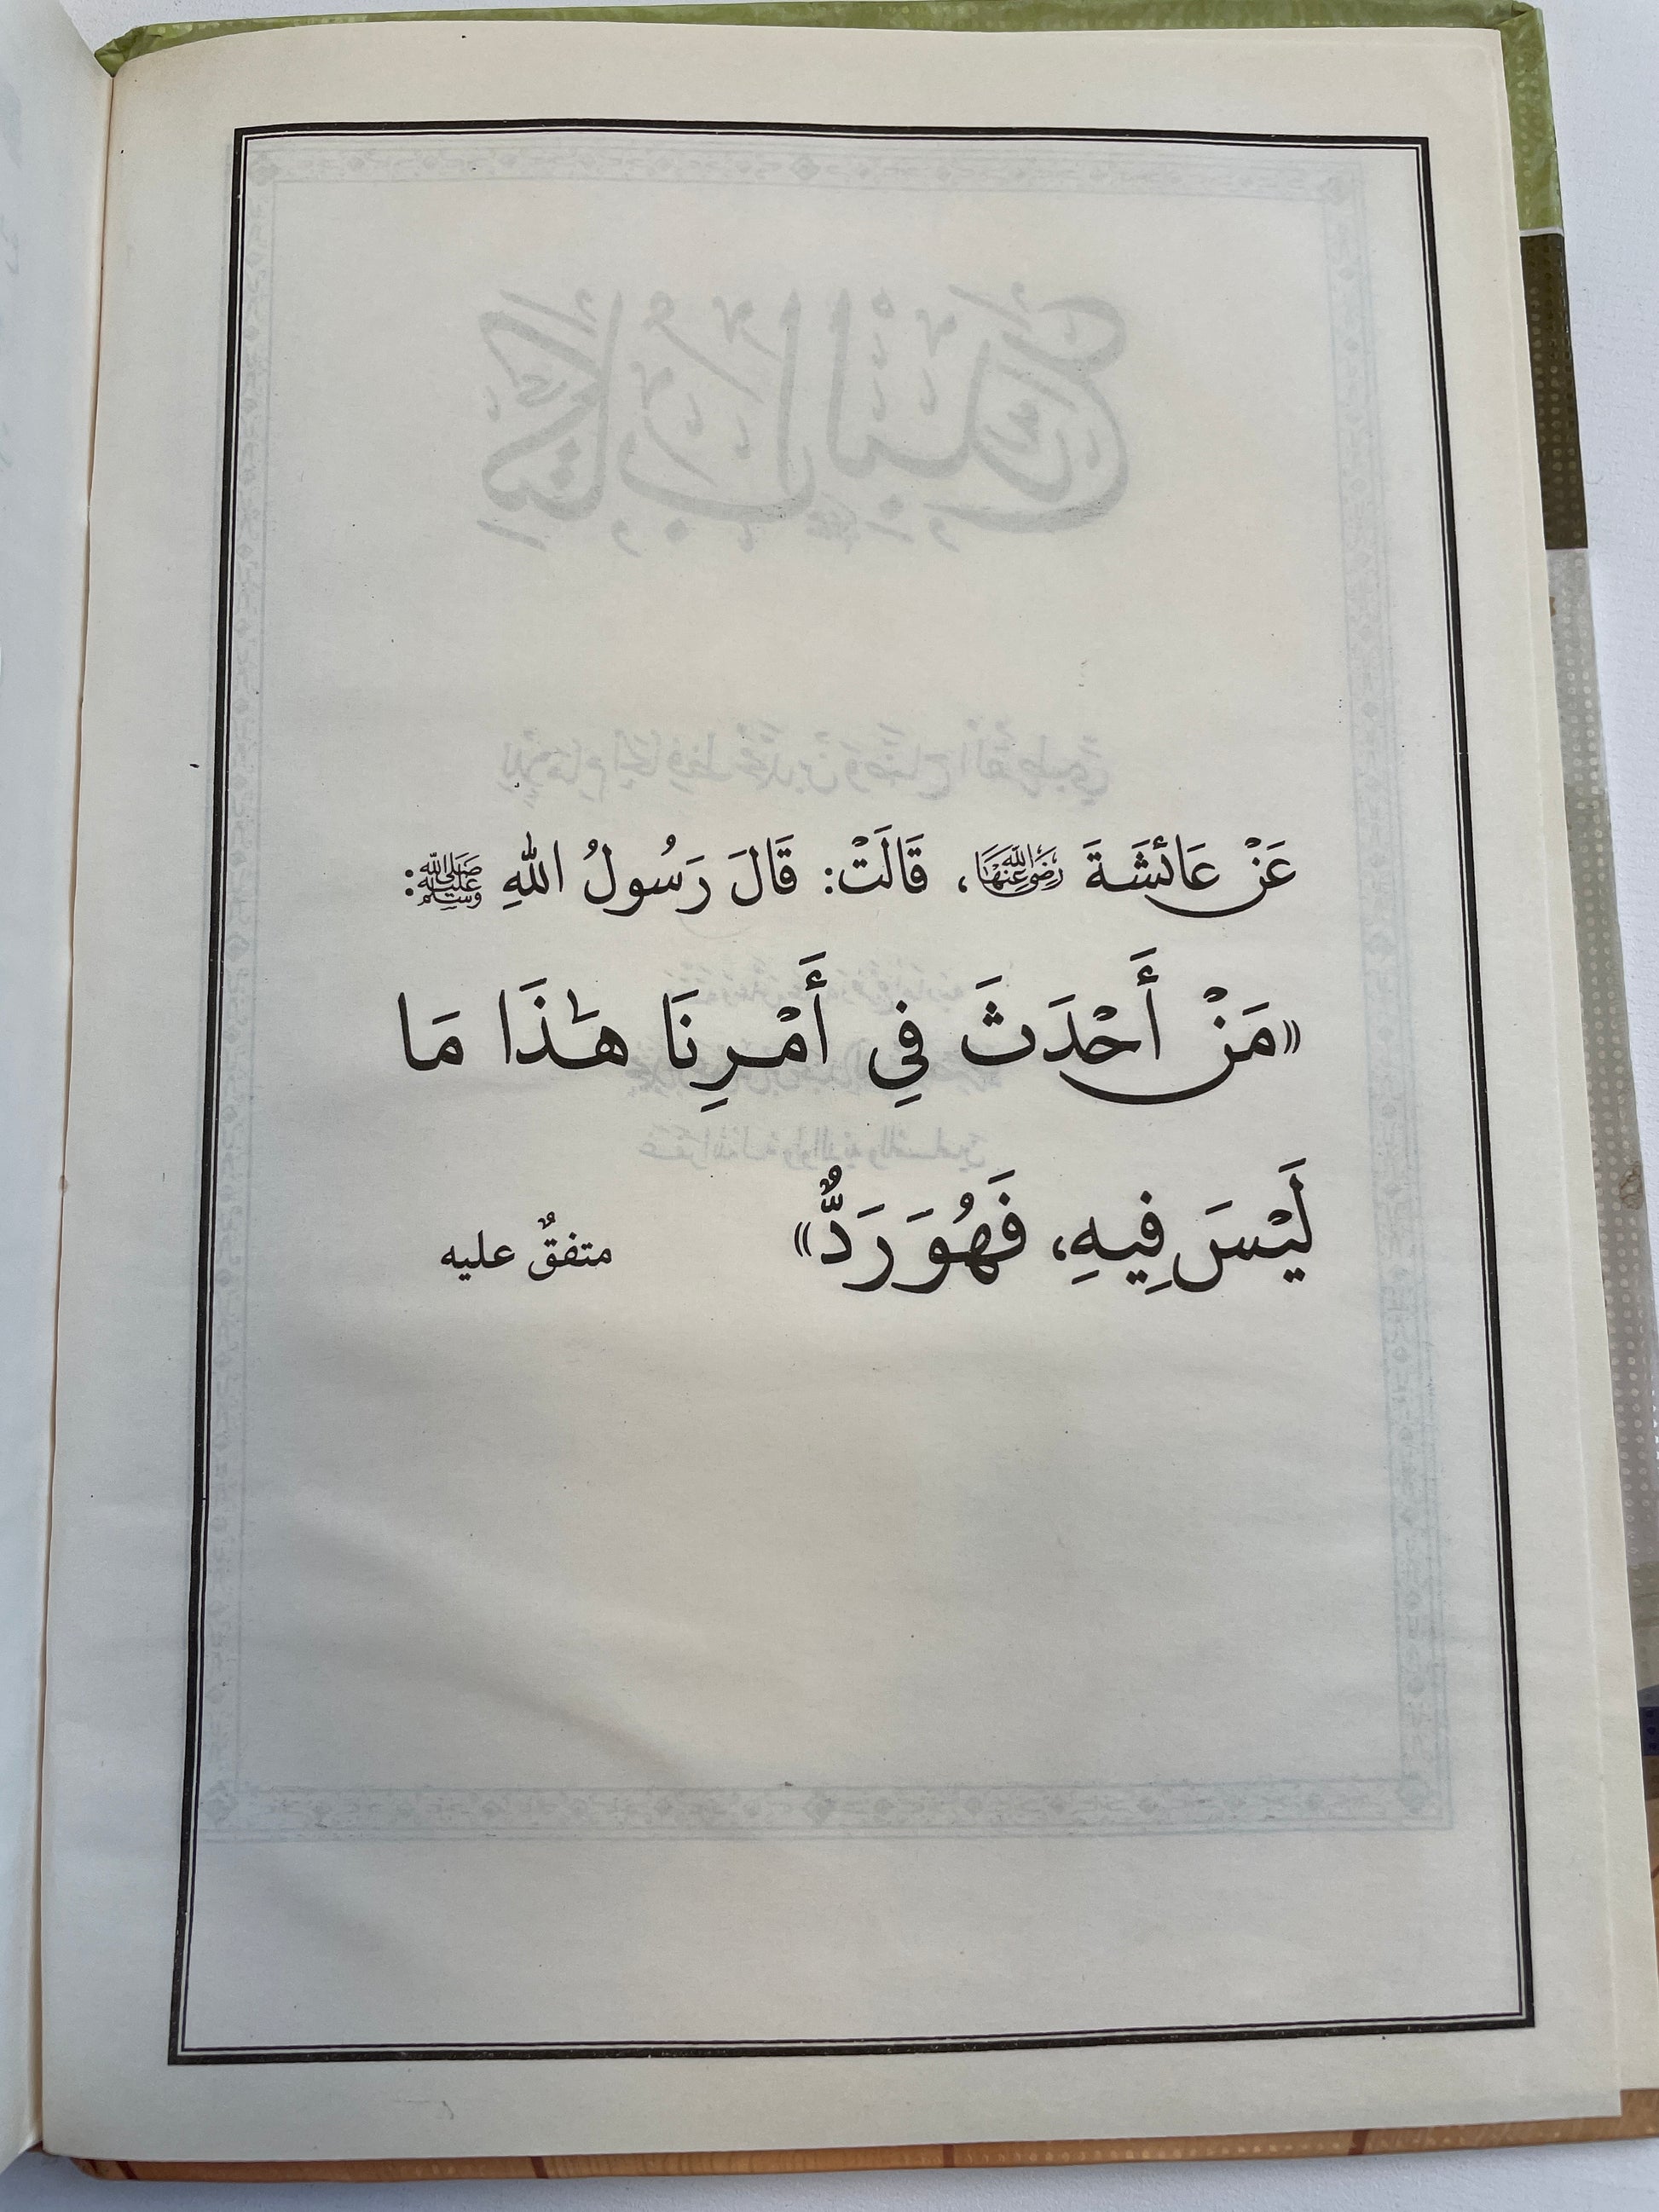 عَنْ عَائشَةَ رَضِيَ اللهُ عَنْهَا، قَالَتْ: قَالَ رَسُولُ اللهِ ﷺ:
«مَنْ أَحْدَثَ فِي أَمْرِنَا هَٰذَا مَا
لَيْسَ فِيهِ، فَهُوَ رَدٌّ» متفقٌ عليه